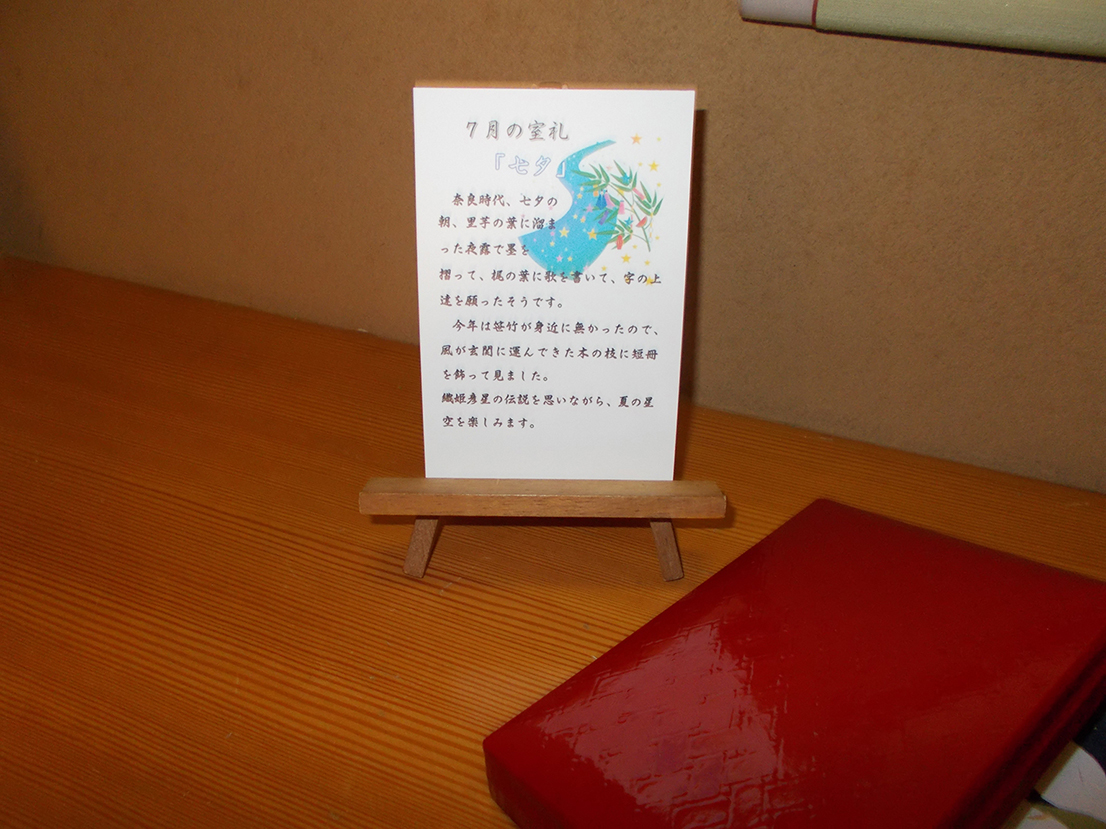 7月の室礼
「七夕」
奈良時代、七夕の
朝、里芋の葉に溜ま
った夜露で墨を
摺って、梶の葉に歌を書いて、字の上
達を願ったそうです。
今年は笹竹が身近に無かったので、
風が玄関に運んできた木の枝に短冊
を飾って見ました。
織姫彦星の伝説を思いながら、夏の星
空を楽しみます。